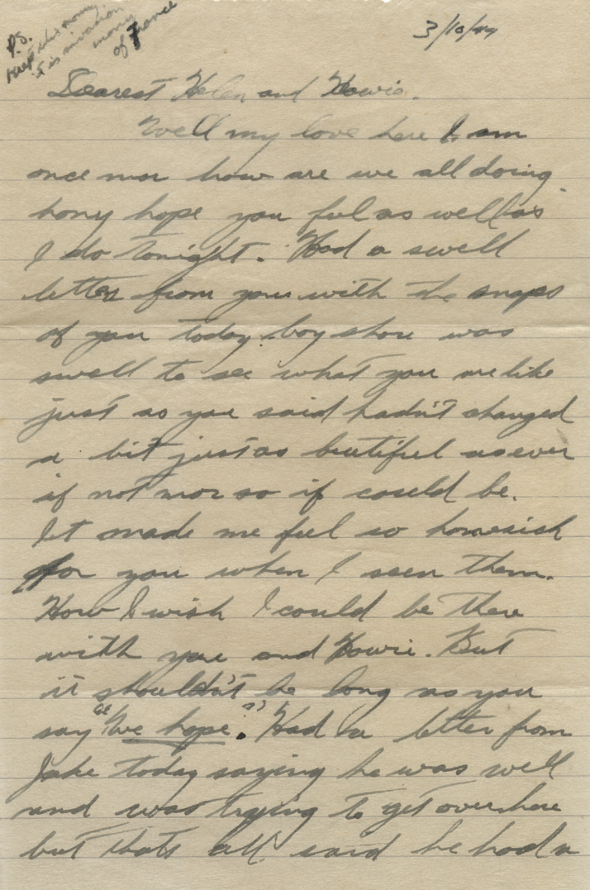 P.S.
Keep this money
it is invasion
money
of France
3/10/44
Dearest Helen and Howie.
Well my love here I am
once mor how are we all doing
hony hope you ful as well as
I do tonight. Had a swell
letter from you with the snaps
of you today boy shore was
swell to see what you are like
just as you said hadn't changed
a bit just as beutiful as ever
if not mor so if could be.
It made me ful so homesick
for you when I seen them.
How I wish I could be there
with you and Howie. But
it shouldn't be long as you
say "We hope". Had a letter from
Jake today saying he was well
and was trying to get over here
but thats all said he had a